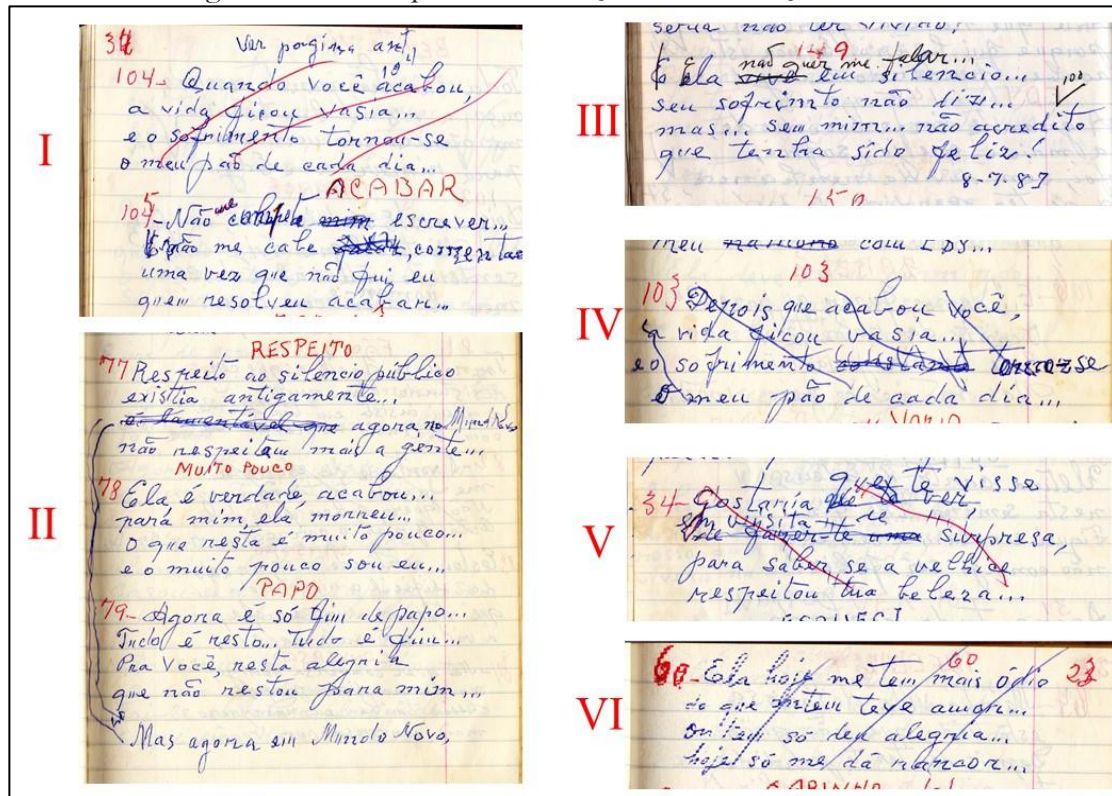 I
34 Ver pagina ant.
104
104- Quando você acabou,
a vida ficou vasia...
e o sofrimento tornou-se
o meu pão de cada dia...
ACABAR
105-Não me compete mim escrever...
E não me cabe, consentae
uma vez que não fui eu
quem resolveu acabar...
II
RESPEITO
77 Respeito ao silencio público
existia antigamente...
é lamentável que agora no Mundo Novo
não respeitam mais a gente...
MUITO POUCO
78 Ela é verdade acabou...
para mim, ela morreu...
O que resta é muito pouco...
e o muito pouco sou eu...
PAPO
79- Agora é só fim de papo...
Tudo é resto... tudo é fim...
Pra Você, resta alegria
que não restou para mim...
Mas agora em Mundo Novo,
III
seria não ter vivido!
149
não quer me falar...
E Ela vive em silencio...
seu sofrimto não diz...
mas... sem mim... não acredito
que tenha sido feliz!
100
8-7-87
150
IV
meu com IDS...
103
103 Depois que acabou Você,
a vida ficou vasia...
e o sofrimento constante tornou-se
o meu pão de cada dia...
V
que te visse
34- Gostaria de te ver,
em visita de
de fazer-te uma surpresa,
para saber se a velhice
respeitou tua beleza...
VI
60
60- Ela hoje me tem mais ódio 23
do que ontem teve amor...
ontem só deu alegria...
hoje só me dá rancor...
CARINHO